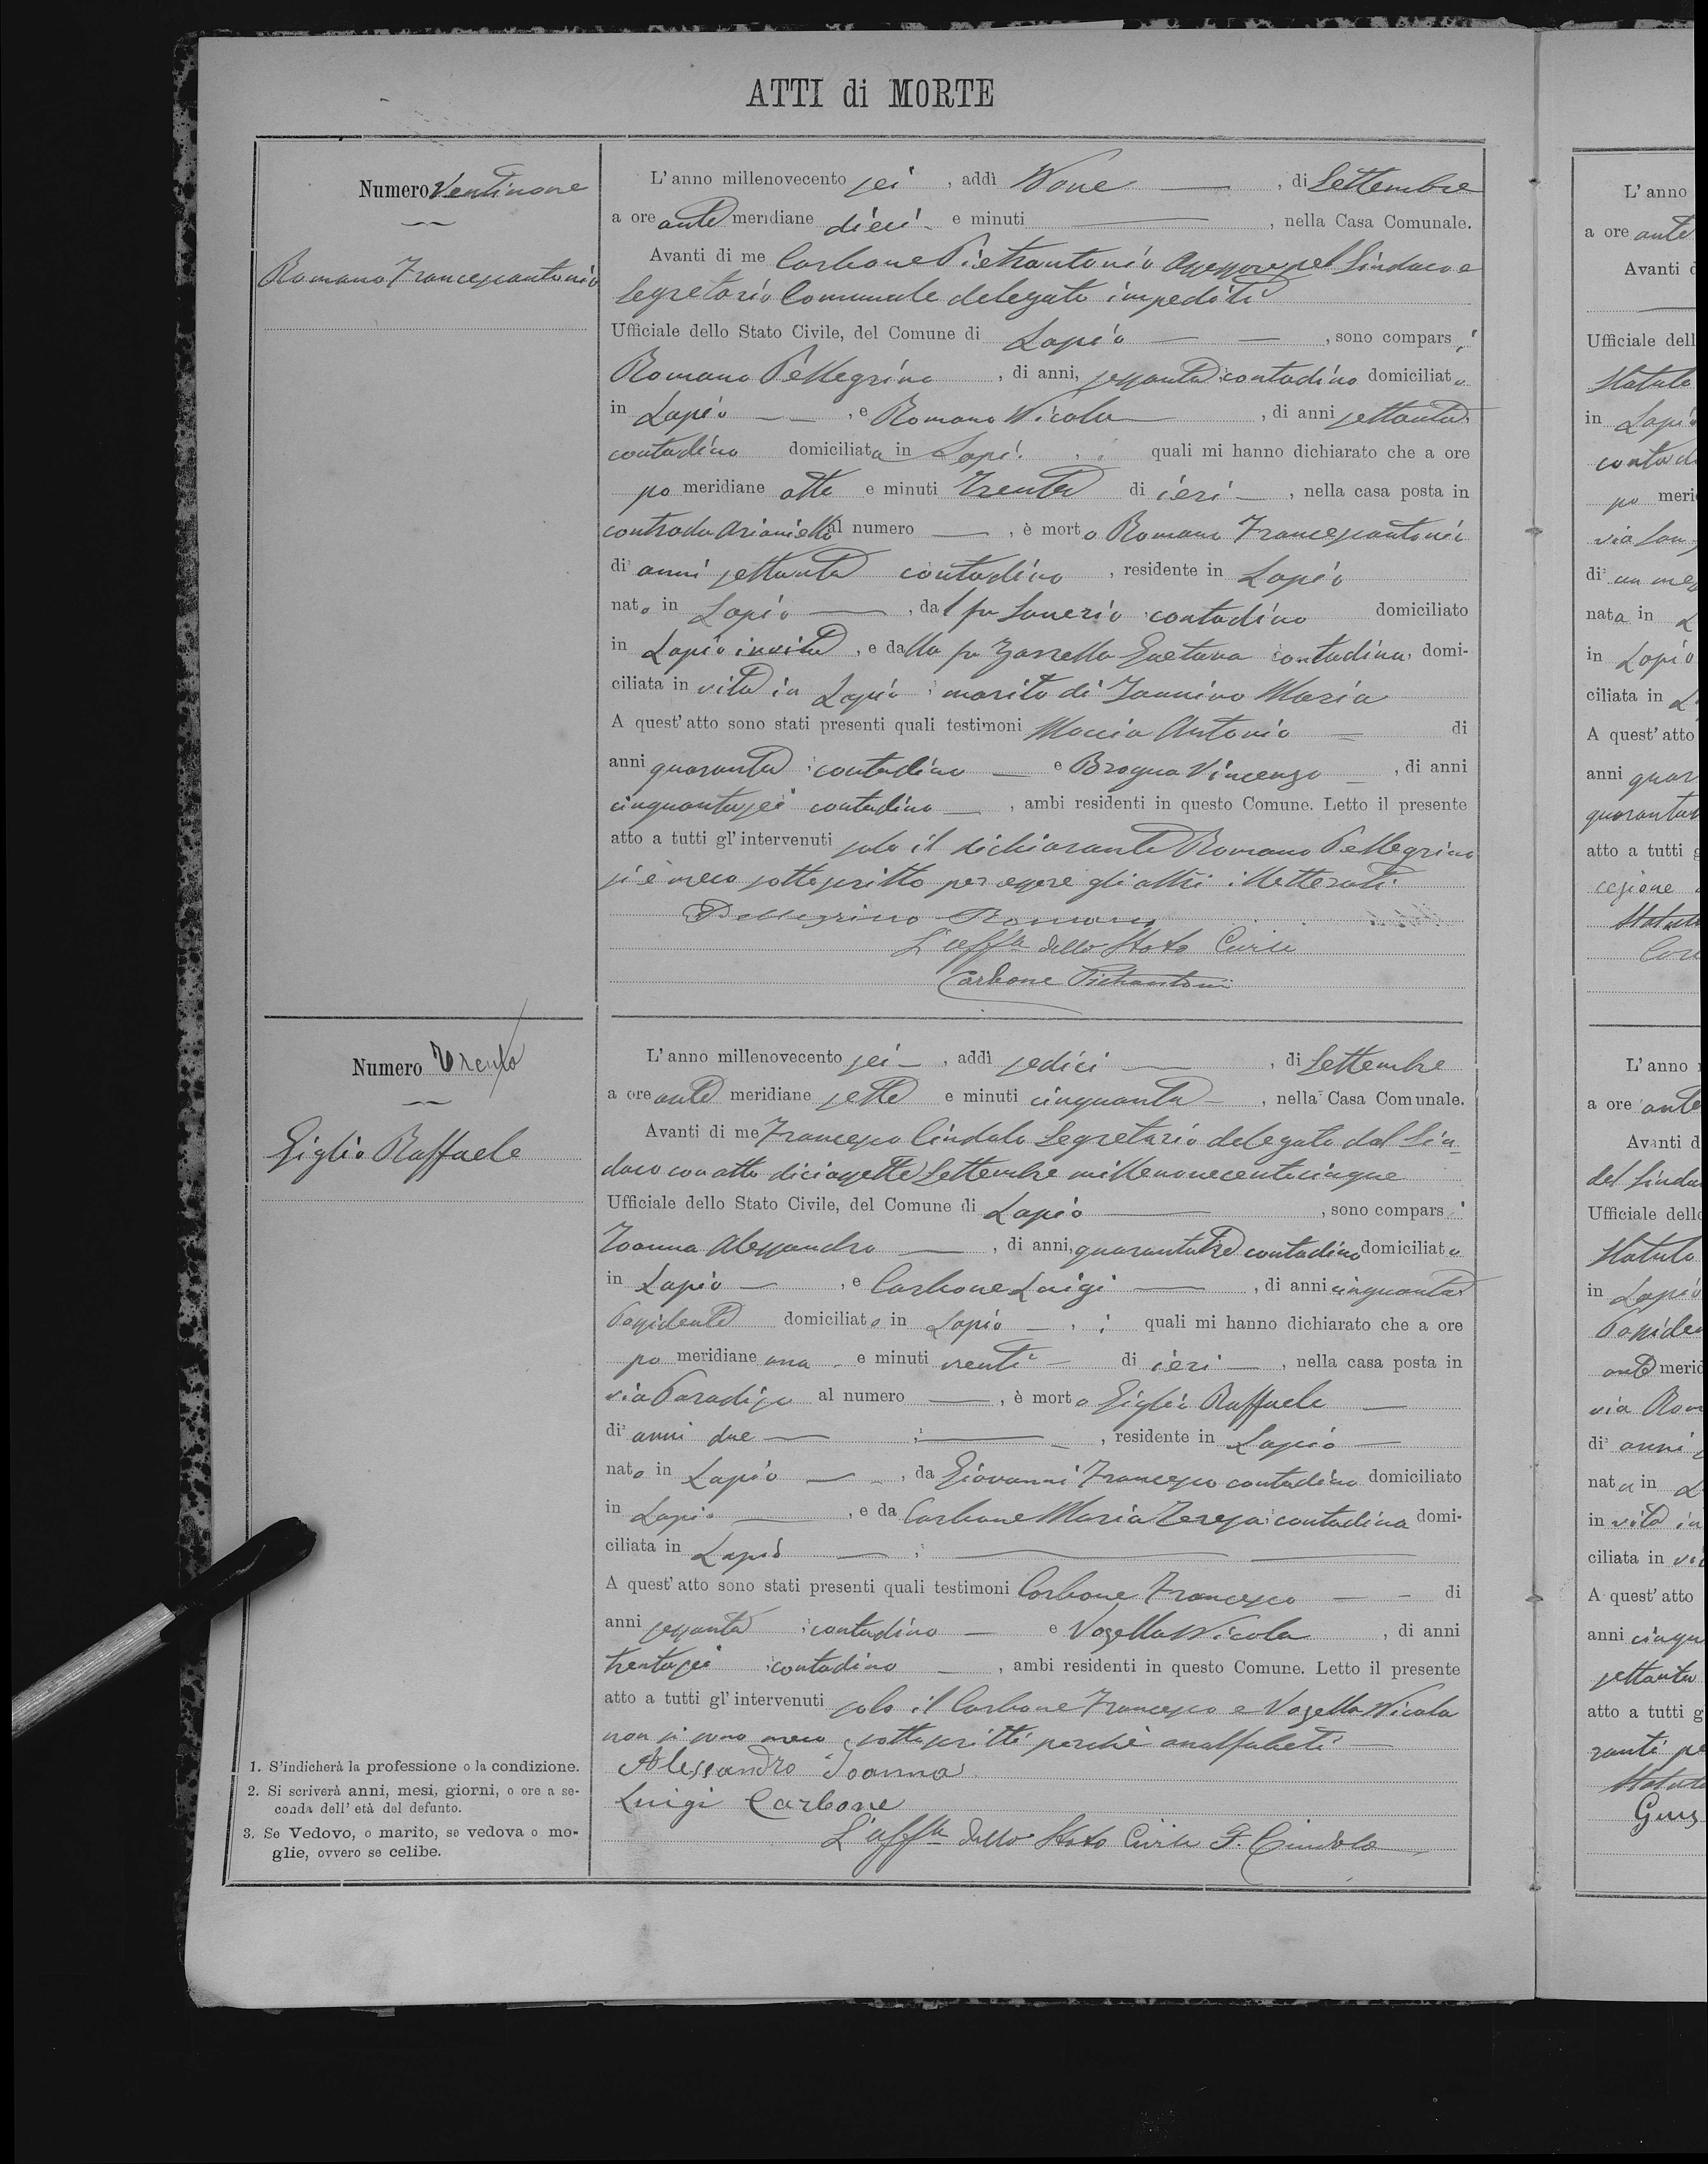 ATTI di MORTE
Numero Ventinove
Romano Francescantonio
L'anno millenovecento sei, addì Nove, di Settembre
a ore ante meridiane dieci e minuti, nella Casa Comunale.
Avanti di me Carbone Pietrantonio Assessore pel Sindaco e
Segretario Comunale delegato impediti
Ufficiale dello Stato Civile, del Comune di Lapio, sono comparsi
Romano Pellegrino, di anni, sessanta contadino domiciliato
in Lapio, e Romano Nicola, di anni settanta
contadino domiciliato in Lapio quali mi hanno dichiarato che a ore
po meridiane otto e minuti trenta di ieri, nella casa posta in
contrada Arianiello al numero, è morto Romano Francescantonio
di anni settanta contadino, residente in Lapio
nato in Lapio, dal fu Saverio contadino domiciliato
in Lapio in vita, e dalla fu Zarrella Gaetana contadina domi-
ciliata in vita in Lapio marito di Iannino Maria
A quest'atto sono stati presenti quali testimoni Maccia Antonio di
anni quaranta contadino e Brogna Vincenzo, di anni
cinquantasei contadino, ambi residenti in questo Comune. Letto il presente
atto a tutti gl'intervenuti solo il dichiarante Romano Pellegrino
si è meco sottoscritto per essere gli altri illetterati.
Pellegrino Romano
L'uffle dello Stato Civile
Carbone Pietrantonio
Numero Trenta
Giglio Raffaele
L'anno millenovecento sei, addì sedici, di Settembre
a ore ante meridiane sette e minuti cinquanta, nella Casa Comunale.
Avanti di me Francesco Cindolo Segretario delegato dal Sin-
daco con atto diciassette Settembre millenovecentocinque
Ufficiale dello Stato Civile, del Comune di Lapio, sono comparsi
Ioanna Alessandro, di anni, quarantatre contadino domiciliato
in Lapio, e Carbone Luigi, di anni cinquanta
Possidente domiciliato in Lapio, i quali mi hanno dichiarato che a ore
po meridiane una e minuti venti di ieri, nella casa posta in
via Paradiso al numero, è morto Giglio Raffaele
di anni due, residente in Lapio
nato in Lapio, da Giovanni Francesco contadino domiciliato
in Lapio, e da Carbone Maria Teresa contadina domi-
ciliata in Lapio
A quest'atto sono stati presenti quali testimoni Carbone Francesco di
anni sessanta contadino e Vozella Nicola, di anni
trentasei contadino, ambi residenti in questo Comune. Letto il presente
atto a tutti gl'intervenuti solo il Carbone Francesco e Vozella Nicola
non si sono meco sottoscritti perchè analfabeti
Alessandro Ioanna
Luigi Carbone
L'uffle dello Stato Civile F. Cindolo
1. S'indicherà la professione o la condizione.
2. Si scriverà anni, mesi, giorni, o ore a se-
conda dell' età del defunto.
3. Se Vedovo, o marito, se vedova o mo-
glie, ovvero se celibe.
L'anno
a ore ante
Avanti
Ufficiale dell
in Lapio
po meri
nata in
in Lapio
ciliata in
A quest'atto
anni quar
atto a tutti
L'anno
a ore ante
Avanti d
del Sinda
Ufficiale dello
in Lapio
ante merid
di anni
nata in
in vita in
ciliata in
A quest'atto
anni cinqu
settanta
atto a tutti g